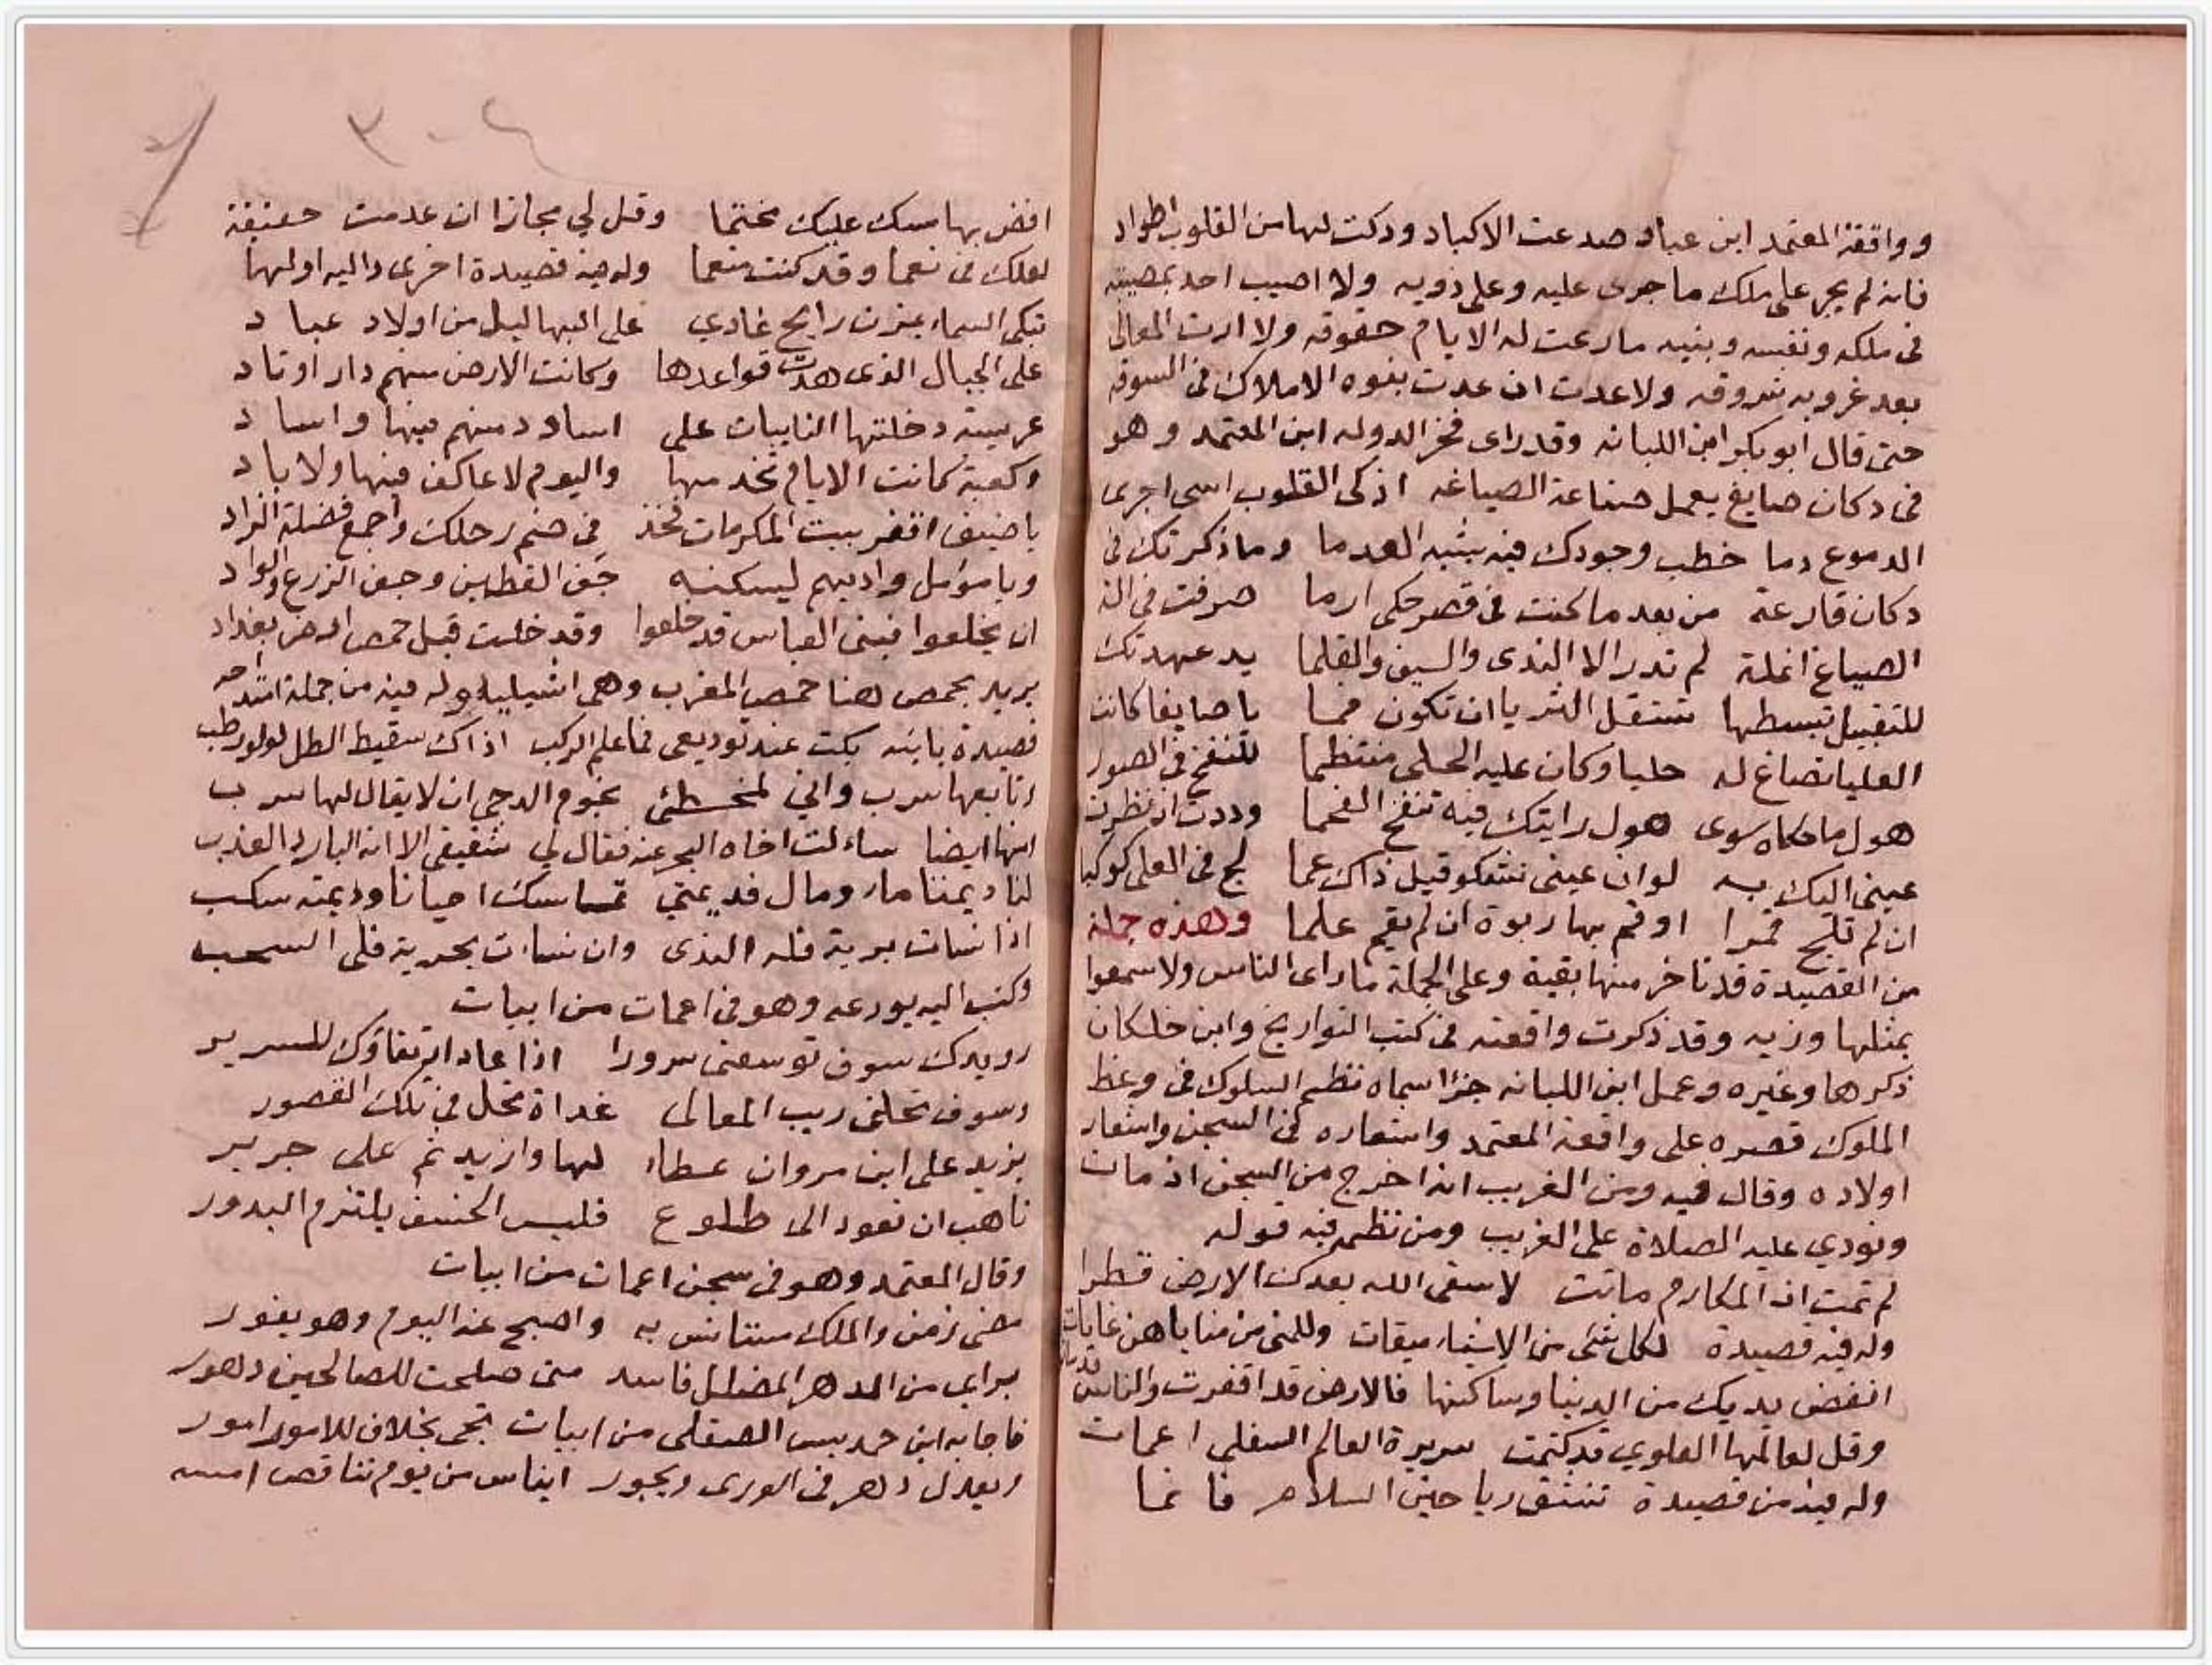 وواقعة المعتمد ابن عباد صدعت الاكباد ودكت لها من القلوب اطواد
فانه لم يجر على ملك ما جرى عليه وعلى ذويه ولا اصيب احد بمصيبته
فى ملكه ونفسه وبنيه ما رعت له الايام حقوقه ولا ارت المعالى
بعد غروبه شروقه ولا عدت ان عدت بنوه الاملاك فى السوقه
حتى قال ابو بكر ابن اللبانه وقد راى فخر الدوله ابن المعتمد وهو
فى دكان صايغ يعمل صناعة الصياغه اذكى القلوب اسى اجرى
الدموع دما خطب وجودك فيه يشبه العدما وما ذكرتك فى
دكان قارعة من بعد ما كنت فى قصر حكى ارما صرفت فى الة
الصياغ انملة لم تدر الا الندى والسيف والقلما يد عهدتك
للتقبيل تبسطها تستقل الثريا ان تكون فما يا صايغا كانت
العليا تصاغ له حليا وكان عليه الحلى منتظما للنفخ فى الصور
هول ما حكاه سوى هول رايتك فيه تنفخ الفحما وددت اذ نظرت
عينى اليك به لو ان عينى تشكو قبل ذاك عما لح فى العلى كوكبا
ان لم تلح قمرا او قم بها ربوة ان لم تقم علما وهذه جملة
من القصيدة قد تاخر منها بقية وعلى الجملة ما راى الناس ولا سمعوا
بمثلها وزيه وقد ذكرت واقعته فى كتب التواريخ وابن خلكان
ذكرها وغيره وعمل ابن اللبانه جزا سماه نظم السلوك فى وعظ
الملوك قصره على واقعة المعتمد واشعاره فى السجن واشعار
اولاده وقال فيه ومن الغريب انه اخرج من السجن اذ مات
ونودي عليه الصلاة على الغريب ومن نظمه فيه قوله
لم تمت انما المكارم ماتت لا سقى الله بعدك الارض قطرا
وله فيه قصيدة لكل شئ من الاشياء ميقات وللمنى من مناياهن غايات
انفض يديك من الدنيا وساكنها فالارض قد اقفرت والناس قد ماتوا
وقل لعالمها العلوي قد كتمت سريرة العالم السفلى اغمات
وله فيه من قصيدة تنشق رياحين السلام فانما
افض بها مسك عليك مختما وقل لي مجازا ان عدمت حقيقة
لعلك فى نعما وقد كنت منعما وله فيه قصيدة اخرى داليه اولها
تبكى السماء بمزن رايح غادي على البهاليل من اولاد عباد
على الجبال الذى هدت قواعدها وكانت الارض منهم دار اوتاد
عريسة دخلتها النايبات على اساود منهم فيها واساد
وكعبة كانت الايام تخدمها واليوم لا عاكف فيها ولا باد
يا ضيف اقفر بيت المكرمات فخذ فى ضم رحلك واجمع فضلة الزاد
ويا مؤمل واديهم ليسكنه خف القطين وجف الزرع والواد
ان يخلعوا فبنى العباس قد خلعوا وقد خلت قبل حمص ارض بغداد
يريد بحمص هنا حمص المغرب وهى اشبيليه وله فيه من جملة امتداحه
قصيدة بايته بكت عند توديعى فما علم الركب اذاك سقيط الطل لولو رطب
وتابعها سرب واني لمخطئ نجوم الدجى ان لا يقال لها سرب
منها ايضا ساءلت اخاه البحر عنه فقال لي شقيقى الا انه البارد العذب
لنا ديمتا ماء ومال فديمتي تماسك احيانا وديمته سكب
اذا نشات برية فله الندى وان نشات بحرية فلى السحب
وكتب اليه يودعه وهو فى اغمات من ابيات
رويدك سوف توسعنى سرورا اذا عاد ارتقاؤك للسرير
وسوف تحلنى ريب المعالى غداة تحل فى تلك القصور
يزيد على ابن مروان عطاء لها وازيد ثم على جرير
تاهب ان تعود الى طلوع فليس الخسف يلتزم البدور
وقال المعتمد وهو فى سجن اغمات من ابيات
مضى زمن والملك مستانس به واصبح عنه اليوم وهو يفور
براي من الدهر المضلل فاسد متى صلحت للصالحين دهور
فاجابه ابن حمديس الصقلى من ابيات تجى بخلاف للامور امور
ويعدل دهر فى الورى ويجور اياس من يوم تناقض امسه